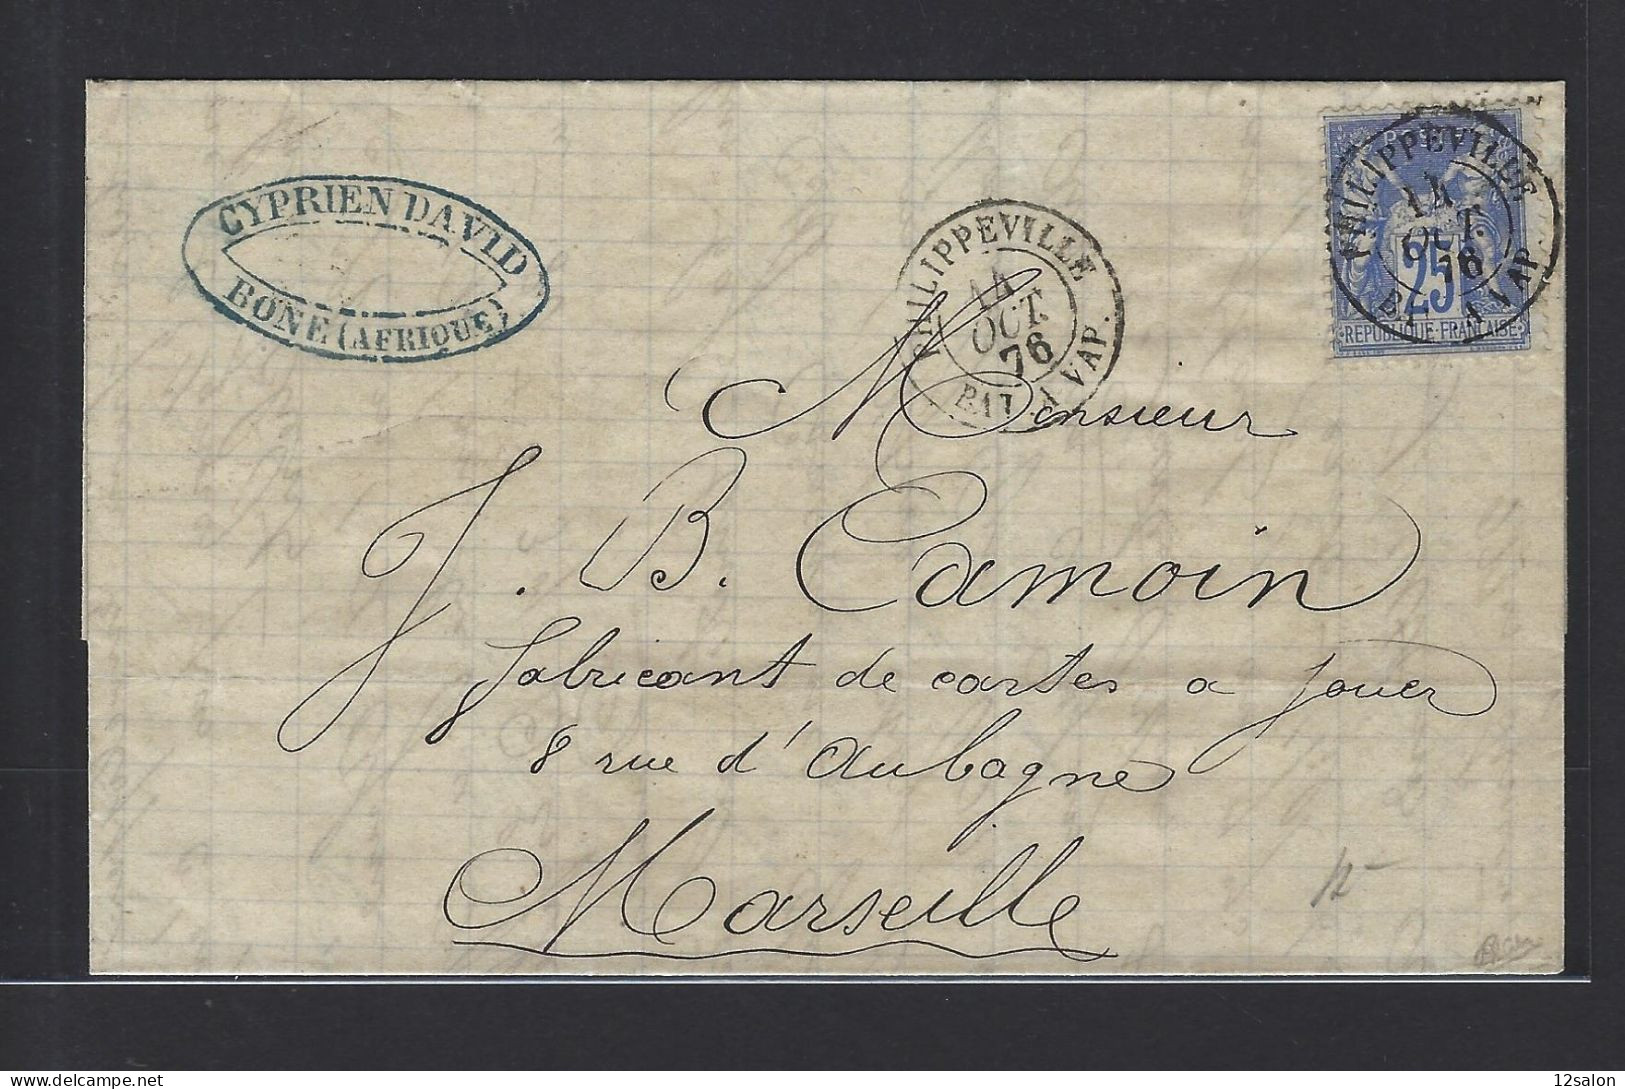 CYPRIEN DAVID
BONE (AFRIQUE)
PHILIPPEVILLE
14
OCT.
76
BAT. A VAP.
PHILIPPEVILLE
14
OCT.
76
BAT. A VAP.
25
REPUBLIQUE FRANCAISE
Monsieur
J. B. Camoin
fabricant de cartes a jouer
8 rue d'Aubagne
Marseille
12salon
delcampe.net